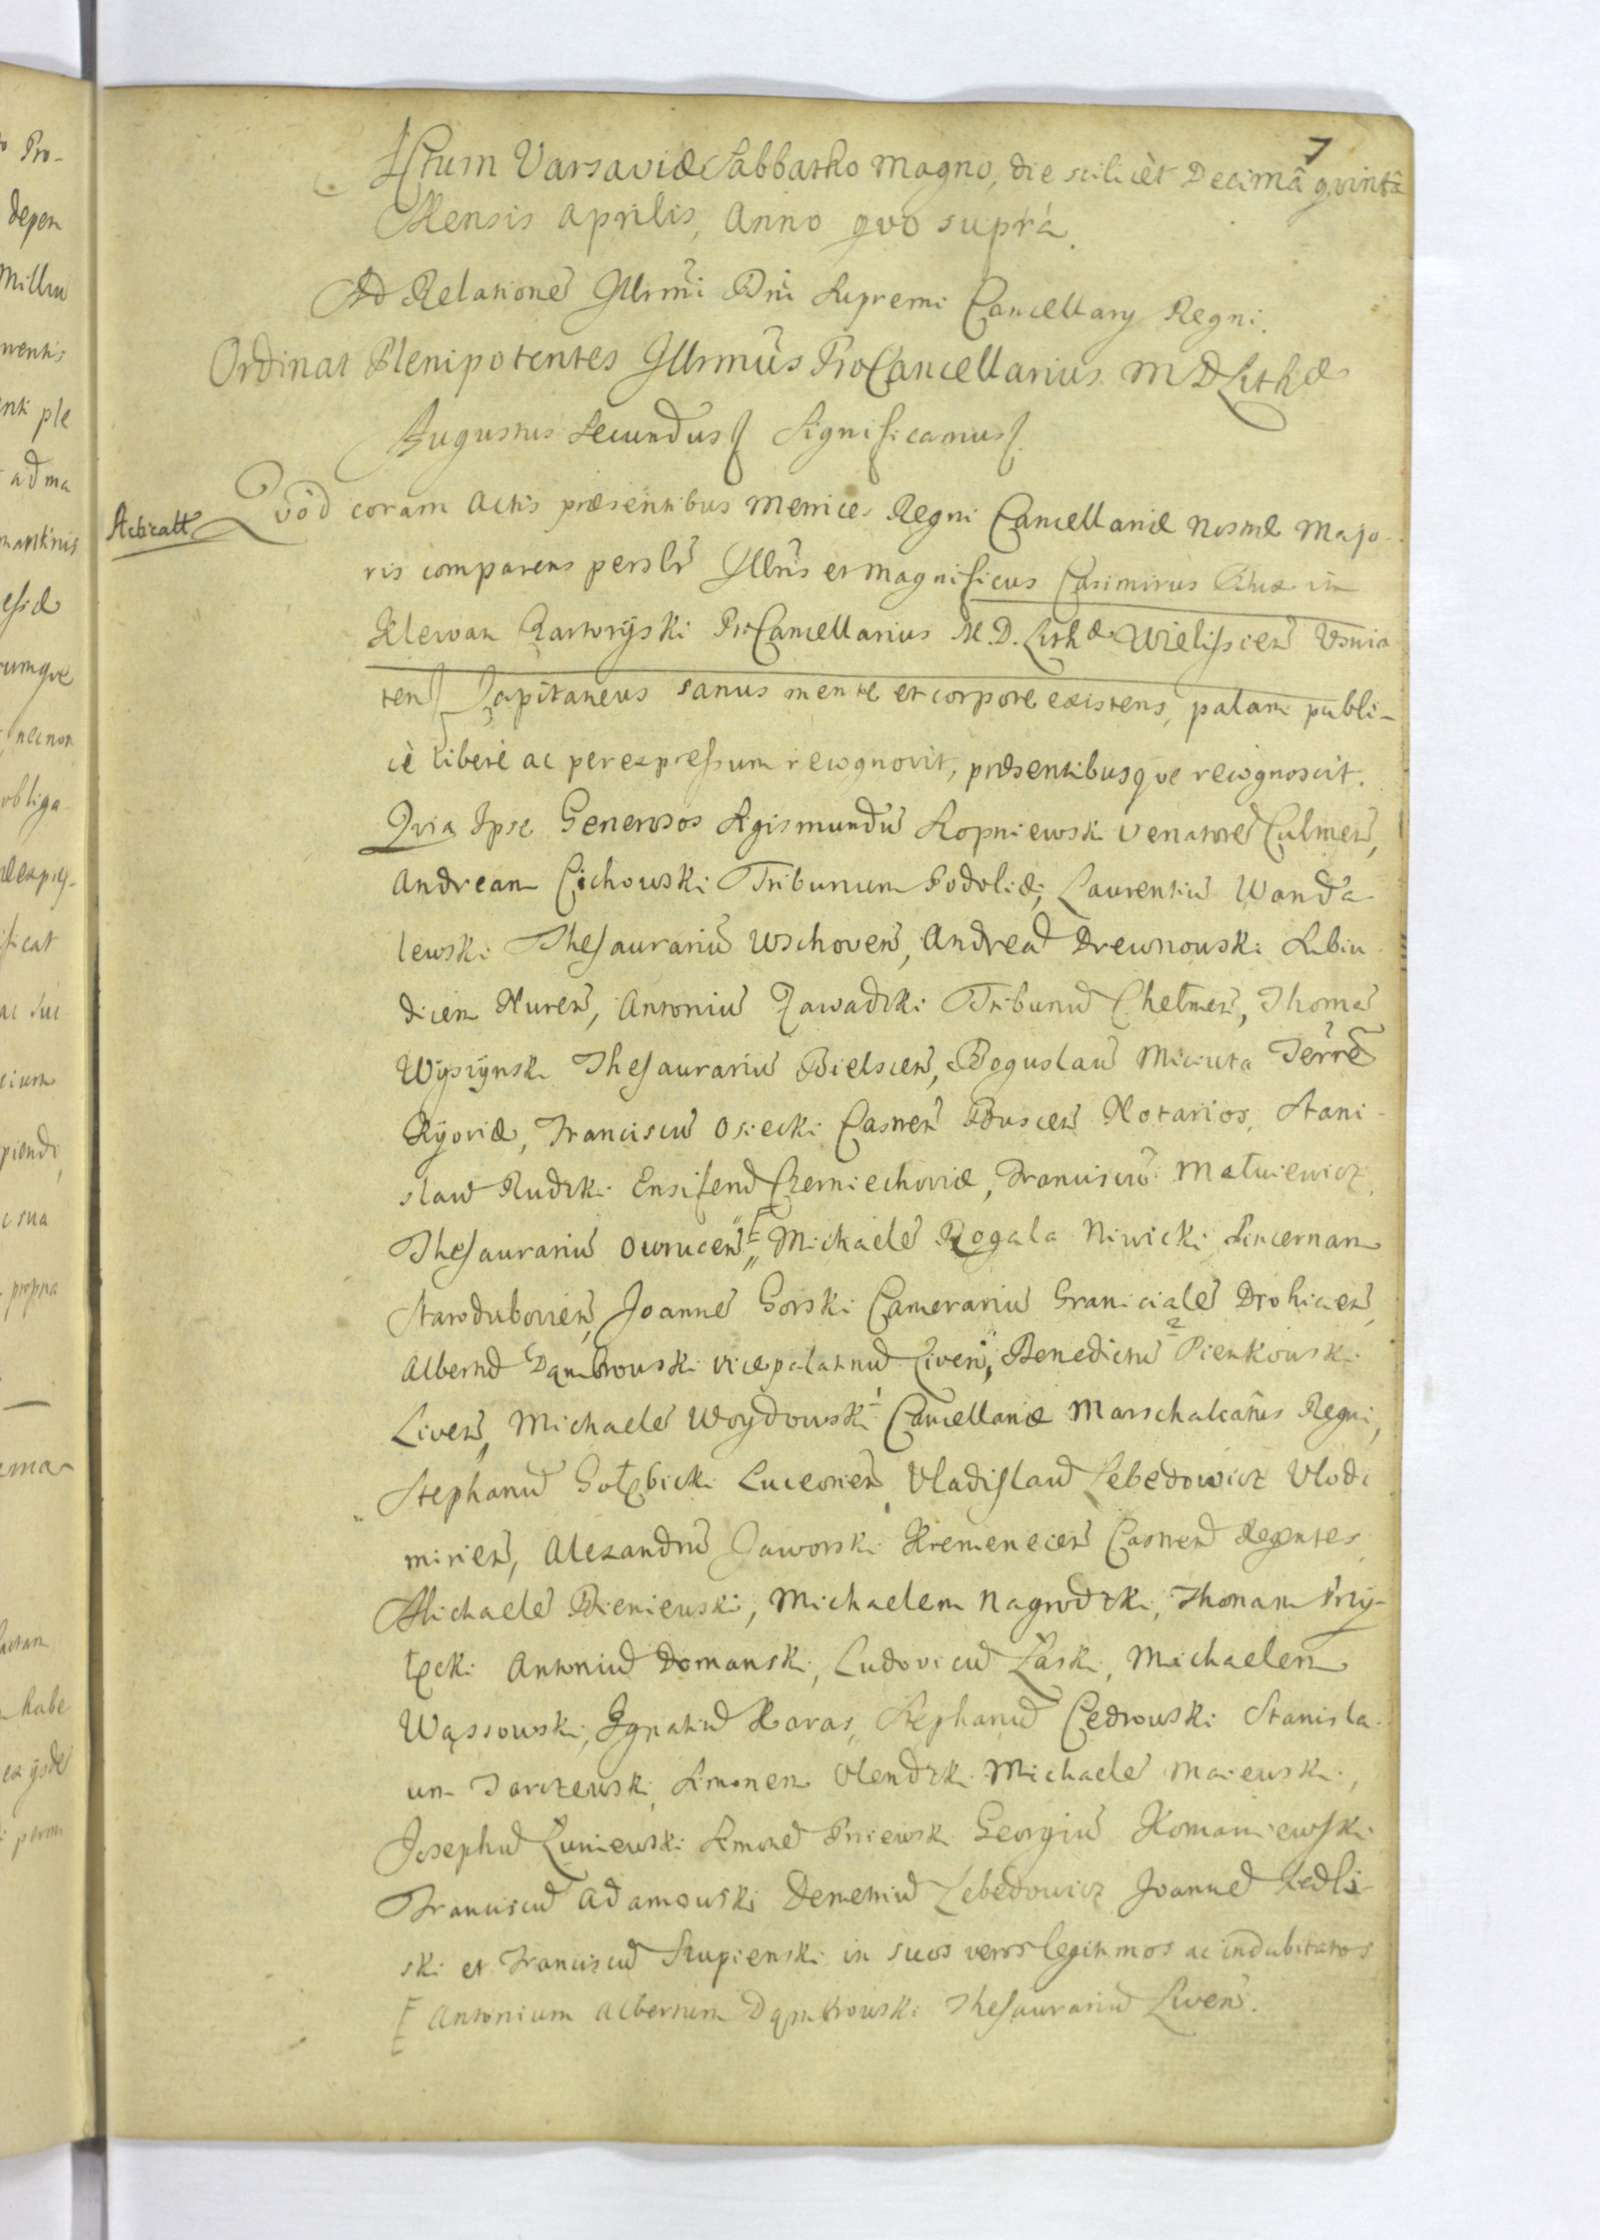 7
Actum Varsaviæ Sabbatho Magno, die scilicèt Decimâ qvintâ
Mensis Aprilis, Anno qvo suprà.
Ad Relatione Illrmi Dni Supremi Cancellarij Regni.
Ordinat Plenipotentes Illrmus ProCancellarius M D Lithæ
Augustus Secundus Significamus
Qvòd coram Actis præsentibus Metrices Regni Cancellariæ Nostræ Majo-
Acticatt
ris comparens persolr Illris et Magnificus Casimirus Dux in
Klewan Czartoryski ProCancellarius M. D. Lithæ Wielisscien Usvia
ten Capitaneus sanus mente et corpore existens, palam publi-
cè liberè ac per expressum recognovit, præsentibusqve recognoscit.
Qvia Ipse Generosos Sigismundu Kopniewski Venatore Culmen,
Andream Cichowski Tribunum Podoliæ, Laurentiu Wanda
lewski Thesaurariu Wschoven, Andrea Drewnowski Subiu
dicem Nuren, Antoniu Zawadzki Tribunu Chelmen, Thoma
Wyszynski Thesaurariu Bielscen, Boguslau Miciuta Terre
Kijoviæ, Franciscu Osiecki Castren Buscen Notarios, Stani-
slau Rudzki Ensiferu Czerniechoviæ, Franciscu Matuiewicz
Thesaurariu Owrucen, Michaele Rogala Niwicki Pincernam
Starodubovien, Joanne Gorski Camerariu Graniciale Drohicien,
Albertu Dąmbrowski Vicepalatinu Liven, Benedictu 2 Pienkowski
Liven, Michaele Woydowski 1 Cancellariæ Marschalcatus Regni,
Stephanu Gołębicki Luceorien, Vladislau Lebedowicz Vlodi
mirien, Alexandru Jaworski Kremenecen Castren Regentes,
Michaele Bieniewski, Michaelem Nagrodzki, Thomam Przy-
łęcki Antoniu Domanski, Ludovicu Łaski, Michaelem
Wąssowski, Ignatiu Karas, Stephanu Cedrowski Stanisla-
um Tarczewski, Simonem Olendzki Michaele Maiewski,
Josephu Łuniewski Simone Pniewski Georgiu Romaniewski
Franciscu Adamowski Demetriu Lebedowicz Joanne Sedli
ski et Franciscu Skupienski in suos veros legitimos ac indubitatos
Antonium Albertum Dąmbrowski Thesaurariu Liven.